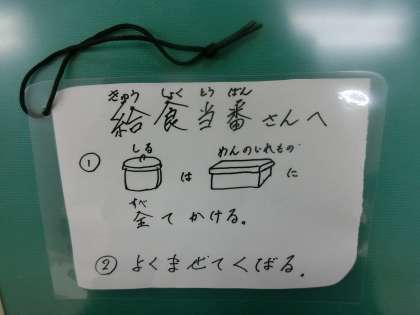 きゅう しょく とう ばん
給食当番さんへ
しる めんのいれもの
① は に
すべ
全てかける。
② よくまぜてくばる。